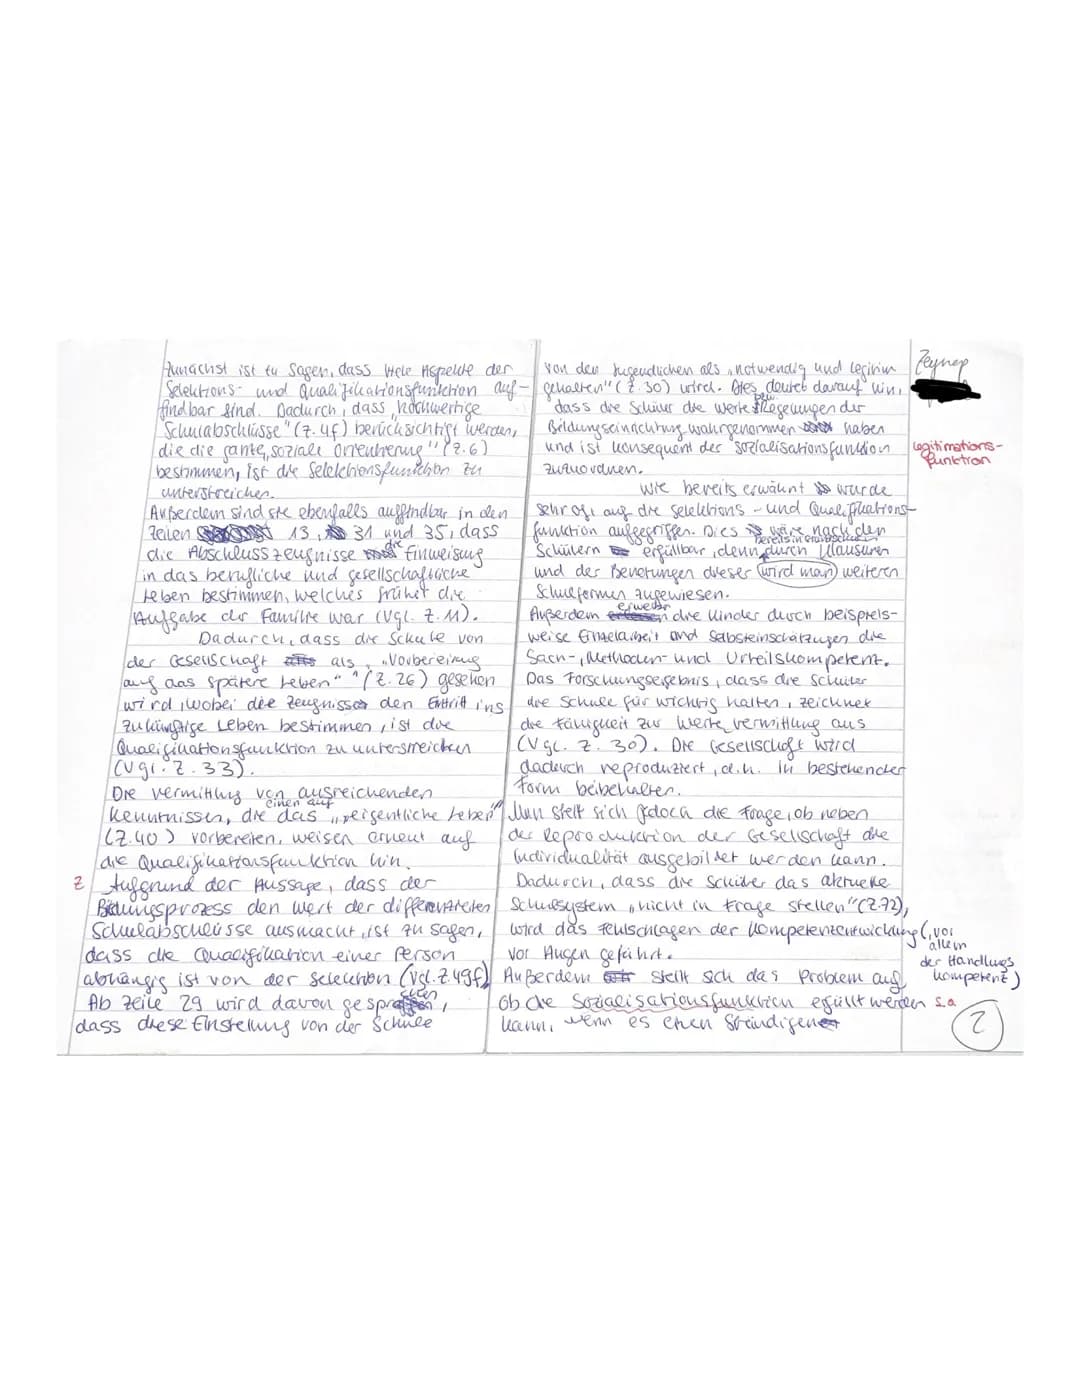 Zunächst ist zu sagen, dass viele Aspekte der
Selektions- und Qualifikationsfunktion auf-
findbar sind. Dadurch, dass „hochwertige
Schulabschlüsse" (Z. 4f) berücksichtigt werden,
die die ganze „soziale Orientierung" (Z. 6)
bestimmen, ist die Selektionsfunktion zu
unterstreichen.
Außerdem sind sie ebenfalls auffindbar in den
Zeilen 13, 31 und 35, dass
die Abschlusszeugnisse die Einweisung
in das berufliche und gesellschaftliche
Leben bestimmen, welches früher die
Aufgabe der Familie war (Vgl. Z. 11).
Dadurch, dass die Schule von
der Gesellschaft als „Vorbereitung
auf das spätere Leben" (Z. 26) gesehen
wird, wobei die Zeugnisse den Eintritt ins
zukünftige Leben bestimmen, ist die
Qualifikationsfunktion zu unterstreichen
(Vgl. Z. 33).
Die Vermittlung von ausreichenden
Kenntnissen, die einen auf das „eigentliche Leben"
(Z. 40) vorbereiten, weisen erneut auf
die Qualifikationsfunktion hin.
Z Aufgrund der Aussage, dass der
Bildungsprozess den Wert der differenzierten
Schulabschlüsse ausmacht, ist zu sagen,
dass die Qualifikation einer Person
abhängig ist von der Selektion (Vgl. Z. 49f)
Ab Zeile 29 wird davon gesprochen,
dass diese Einstellung von der Schule
von den Jugendlichen als „notwendig und legitim
gehalten" (Z. 30) wird. Dies deutet darauf hin,
dass die Schüler die Werte bzw. Regelungen der
Bildungseinrichtung wahrgenommen haben
und ist konsequent der Sozialisationsfunktion
zuzuordnen.
Wie bereits erwähnt wurde
sehr oft auf die Selektions- und Qualifikations-
funktion aufgegriffen. Dies wäre nach den
Schülern erfüllbar, denn bereits in durch Klausuren
und der Benotungen dieser wird man weiteren
Schulformen zugewiesen.
Außerdem erweitern die Kinder durch beispiels-
weise Einzelarbeit und Selbsteinschätzungen die
Sach-, Methoden- und Urteilskompetenz.
Das Forschungsergebnis, dass die Schüler
die Schule für wichtig halten, zeichnet
die Fähigkeit zur Wertevermittlung aus
(Vgl. Z. 30). Die Gesellschaft wird
dadurch reproduziert, d.h. in bestehender
Form beibehalten.
Nun stellt sich jedoch die Frage, ob neben
der Reproduktion der Gesellschaft die
Individualität ausgebildet werden kann.
Dadurch, dass die Schüler das aktuelle
Schulsystem „nicht in Frage stellen" (Z. 72),
wird das Fehlschlagen der Kompetenzentwicklung (, vor
allem
der Handlungs
kompetenz)
vor Augen geführt.
Außerdem stellt sich das Problem auf,
ob die Sozialisationsfunktion erfüllt werden s.o.
kann, wenn es einen Ständigen
Zeynep
Legitimations-
funktion
2